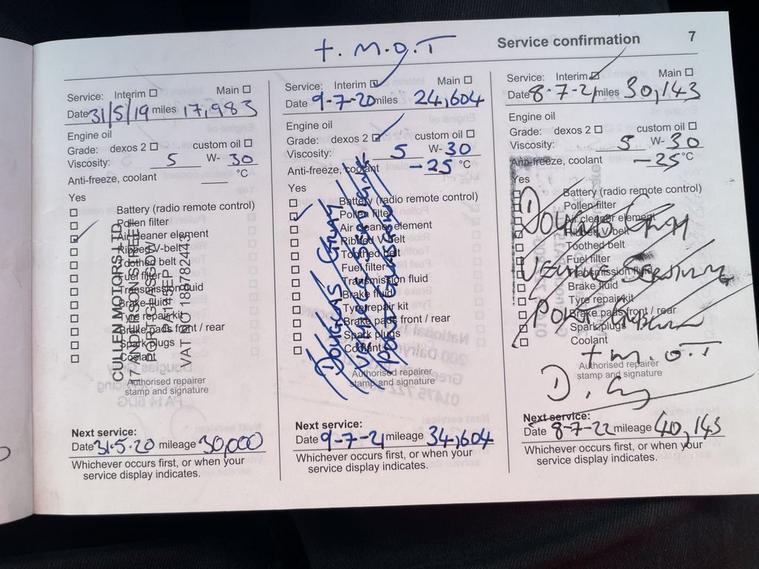 +. M.O.T
Service confirmation 7
Service: Interim Main
Date 31/5/19 miles 17,983
Engine oil
Grade: dexos 2 custom oil
Viscosity: 5 W- 30
Anti-freeze, coolant °C
Yes
Battery (radio remote control)
Pollen filter
Air cleaner element
Ribbed V-belt
Toothed belt
Fuel filter
Transmission fluid
Brake fluid
Tyre repair kit
Brake pads front / rear
Spark plugs
CULLEN MOTORS LTD
PORT GLASGOW
Authorised repairer
stamp and signature
Next service:
Date 31-5-20 mileage 30,000
Whichever occurs first, or when your
service display indicates.
Service: Interim Main
Date 9-7-20 miles 24,604
Engine oil
Grade: dexos 2 custom oil
Viscosity: 5 W- 30
Anti-freeze, coolant -25 °C
Yes
Battery (radio remote control)
Pollen filter
Air cleaner element
Ribbed V-belt
Toothed belt
Fuel filter
Transmission fluid
Brake fluid
Tyre repair kit
Brake pads front / rear
Spark plugs
Coolant
DOUGLAS
Authorised repairer
stamp and signature
Next service:
Date 9-7-21 mileage 34,604
Whichever occurs first, or when your
service display indicates.
Service: Interim Main
Date 8-7-21 miles 30,143
Engine oil
Grade: dexos 2 custom oil
Viscosity: 5 W- 30
Anti-freeze, coolant -25 °C
Yes
Battery (radio remote control)
Pollen filter
Air cleaner element
Ribbed V-belt
Toothed belt
Fuel filter
Transmission fluid
Brake fluid
Tyre repair kit
Brake pads front / rear
Spark plugs
Coolant
DOUGLAS
+ M.O.T
Authorised repairer
stamp and signature
Next service:
Date 8-7-22 mileage 40,143
Whichever occurs first, or when your
service display indicates.